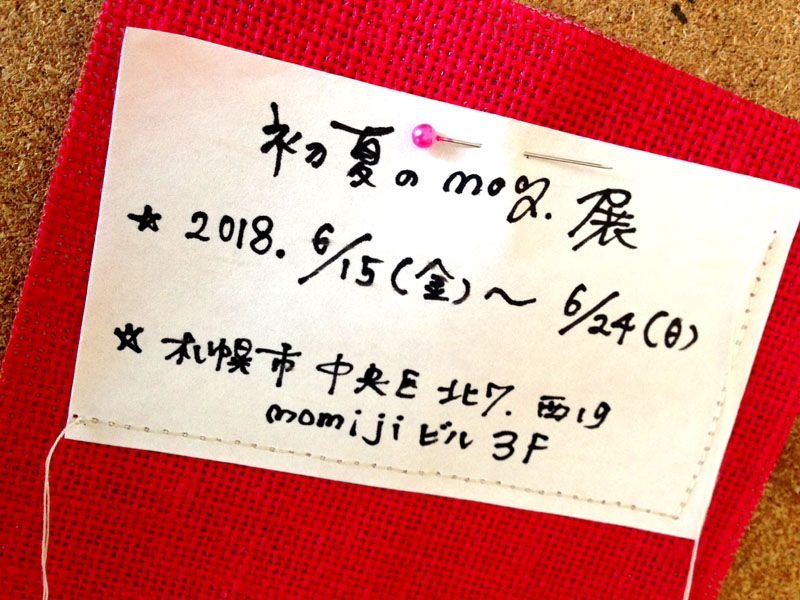 初夏のmog.展
☆ 2018. 6/15(金)～6/24(日)
☆ 札幌市中央区北7.西19
momijiビル3F